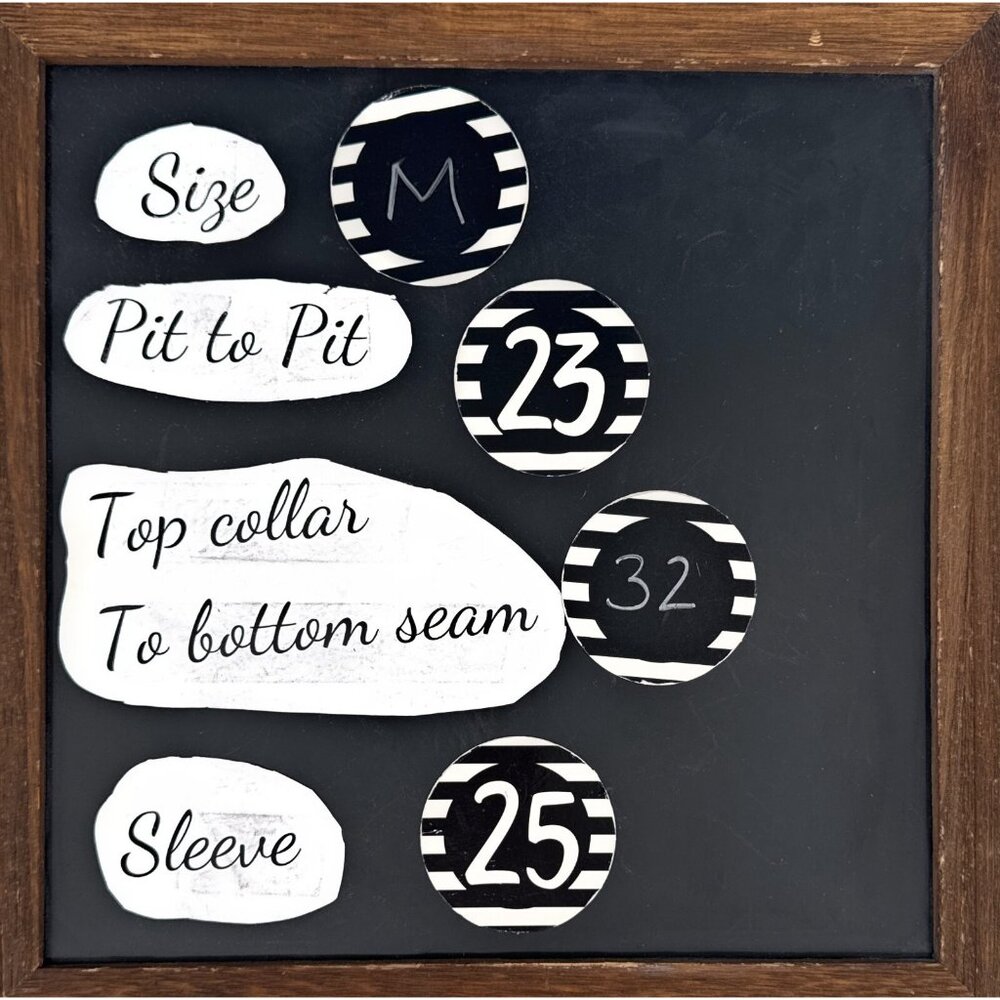 Size M
Pit to Pit 23
Top collar
To bottom seam 32
Sleeve 25